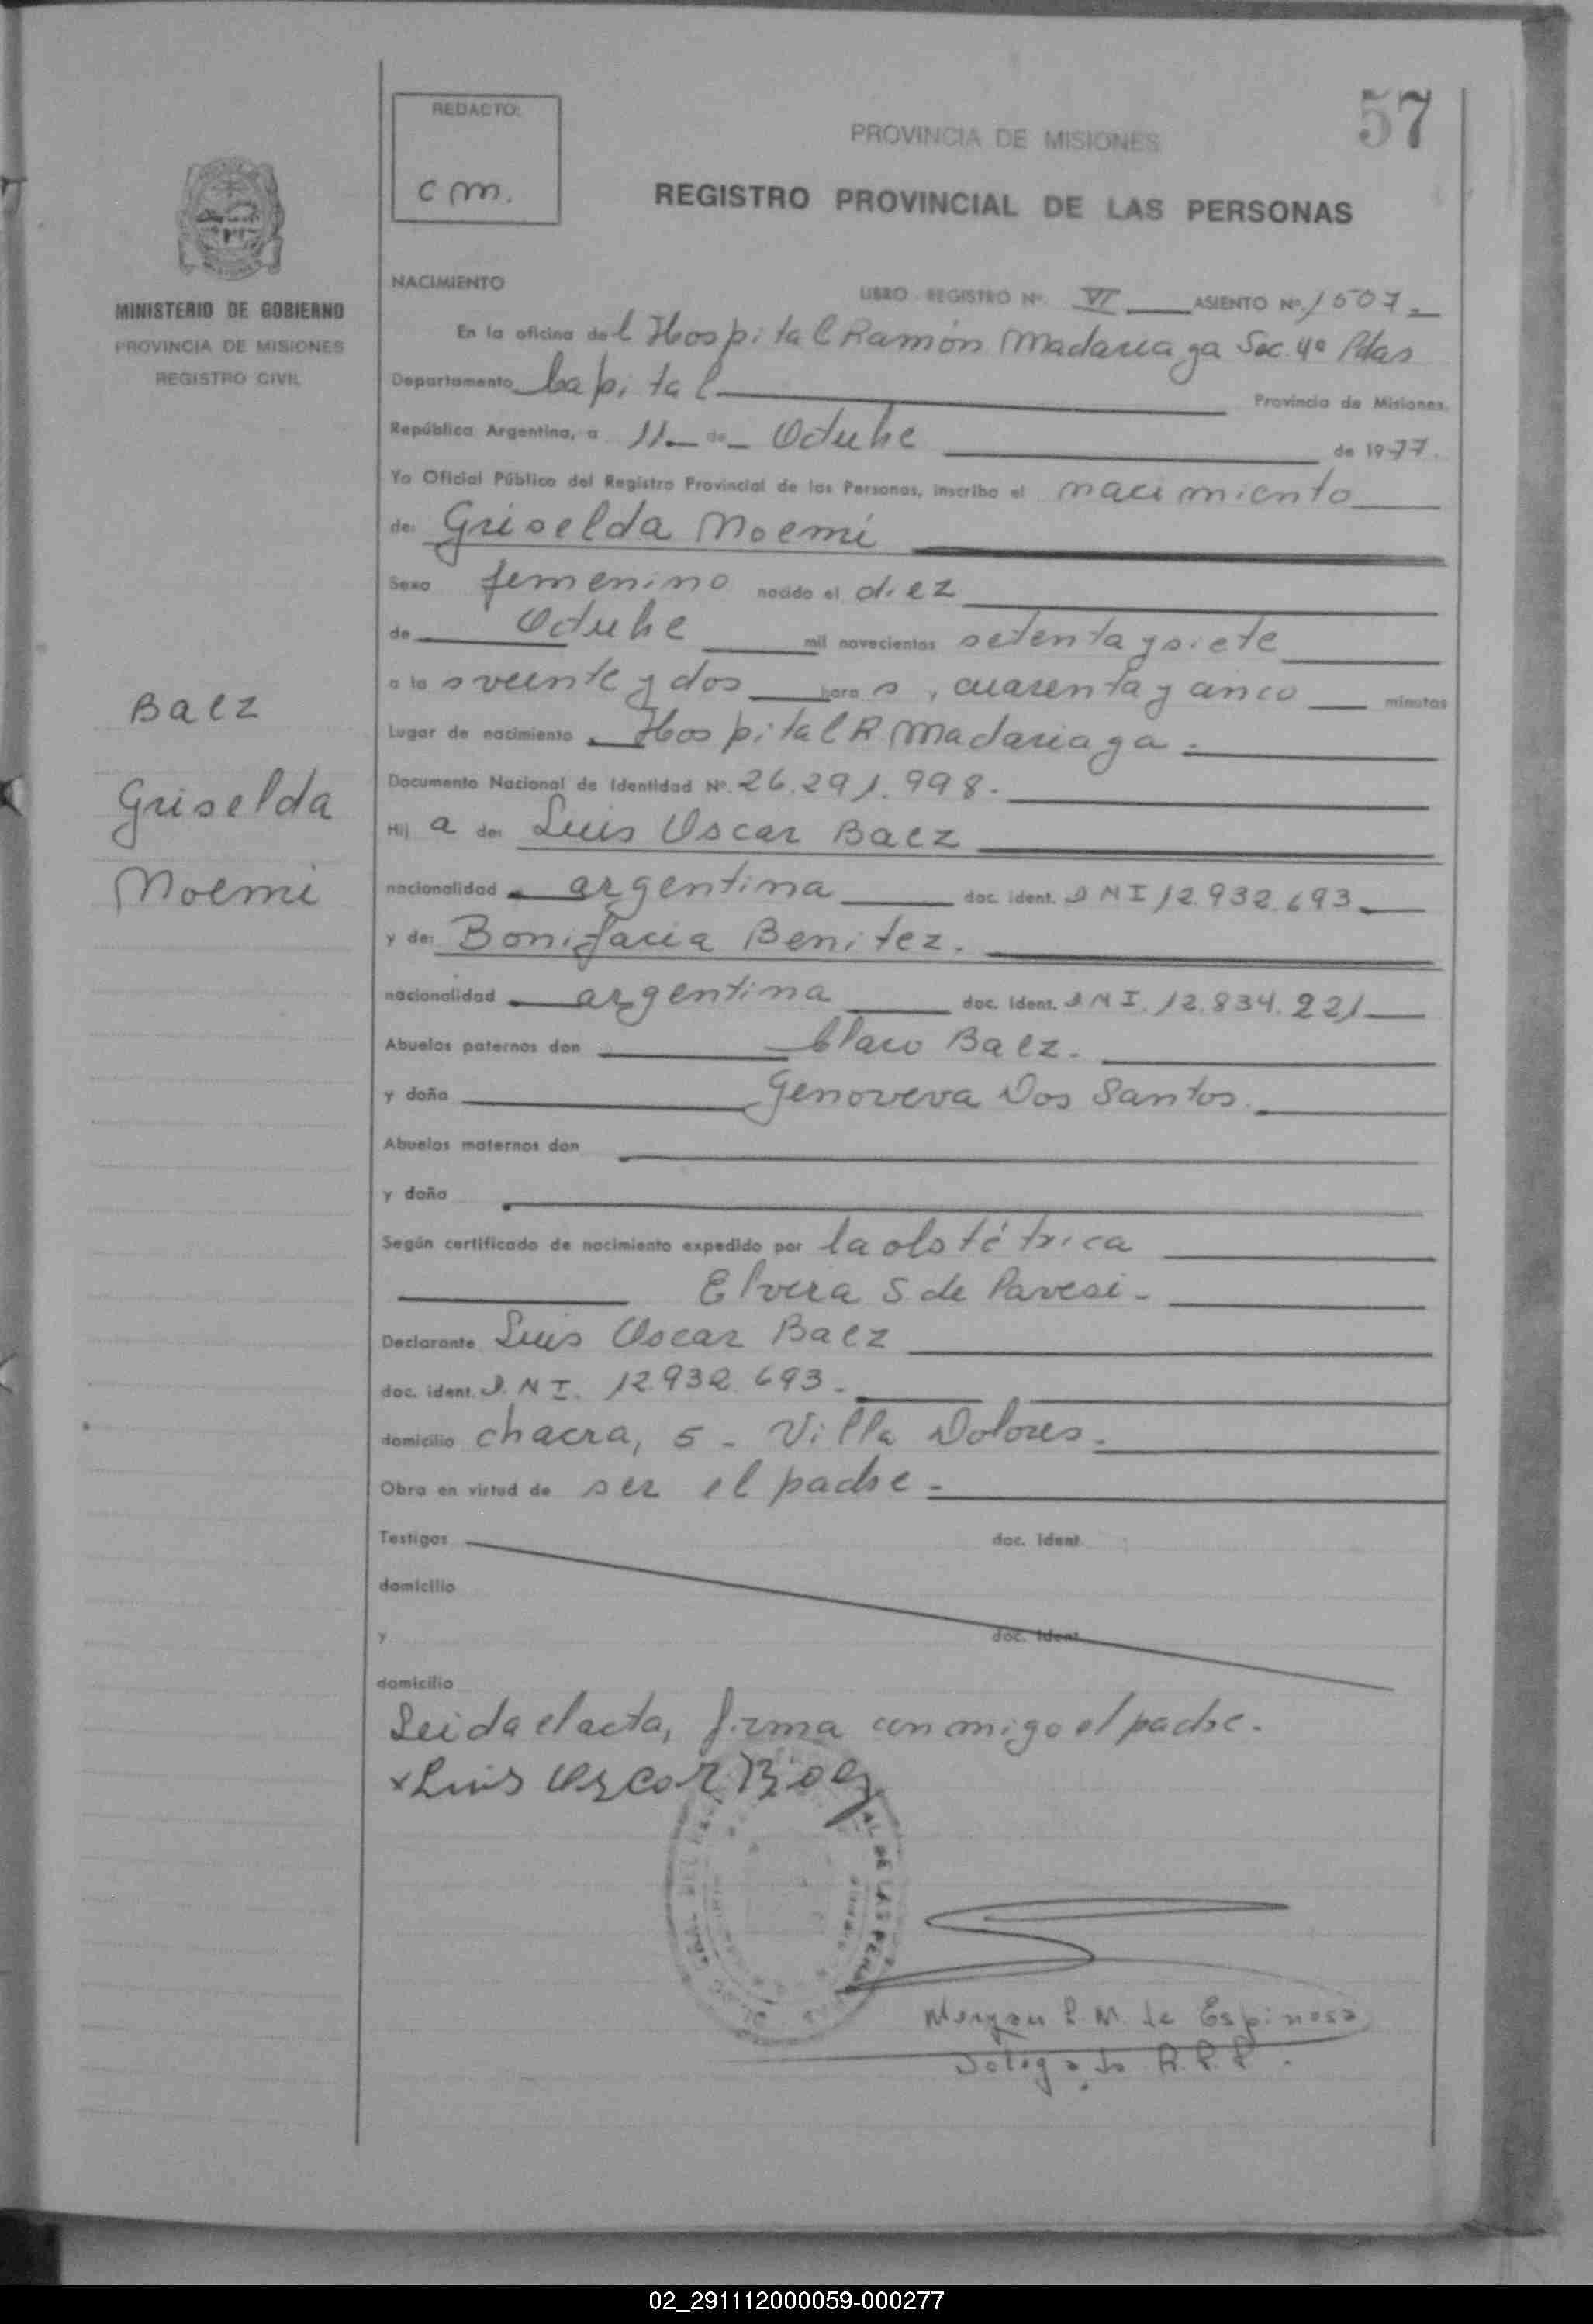 57
REDACTO:
cm.
PROVINCIA DE MISIONES
REGISTRO PROVINCIAL DE LAS PERSONAS
MINISTERIO DE GOBIERNO
PROVINCIA DE MISIONES
REGISTRO CIVIL
Baez
Griselda
Noemi
NACIMIENTO
LIBRO REGISTRO Nº. VI ASIENTO Nº. 1507
En la oficina del Hospital Ramón Madariaga Sec. 4º Pdas
Departamento Capital Provincia de Misiones.
República Argentina, a 11 de Octubre de 1977.
Yo Oficial Público del Registro Provincial de las Personas, inscribo el nacimiento
de: Griselda Noemí
Sexo femenino nacido el diez
de Octubre mil novecientos setenta y siete
a las veinte y dos horas, cuarenta y cinco minutos
Lugar de nacimiento Hospital R Madariaga.
Documento Nacional de Identidad Nº. 26.291.998.
Hija de: Luis Oscar Baez
nacionalidad argentina doc. ident. DNI 12.932.693
y de: Bonifacia Benitez.
nacionalidad argentina doc. ident. DNI. 12.834.221
Abuelos paternos don Baez.
y doña Genoveva Dos Santos.
Abuelos maternos don
y doña
Según certificado de nacimiento expedido por la obstétrica
Elvira S de Pavesi
Declarante Luis Oscar Baez
doc. ident. D.N.I. 12.932.693.
domicilio chacra, 5 - Villa Dolores.
Obra en virtud de ser el padre
Testigos doc. ident.
domicilio
y doc. ident.
domicilio
Leida el acta, firma conmigo el padre.
x Luis Oscar Baez
AL DE LAS PERS
P. M. de Espinosa
R.P.P.
02_291112000059-000277